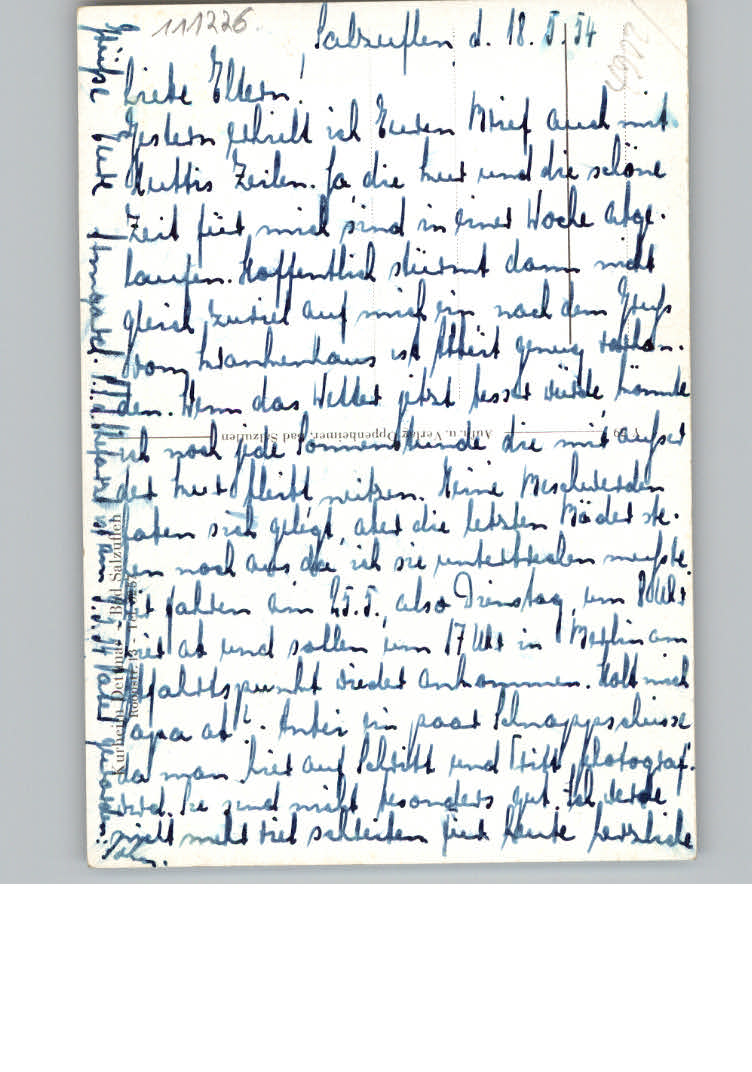 111226
Salzuflen, d. 18.5.54
Liebe Eltern!
Gestern erhielt ich Euren Brief auch mit
Muttis Zeilen. Ja die Kur und die schöne
Zeit für mich sind in einer Woche abge-
laufen. Hoffentlich stürmt dann nicht
gleich zuviel auf mich ein, nach dem Gruß
vom Krankenhaus ist Arbeit genug vorhan-
den. Wenn das Wetter jetzt besser würde könnte
ich noch jede Sonnenstunde die mir außer
der Kur bleibt nutzen. Meine Beschwerden
haben sich gelegt, aber die letzten Bäder ste-
hen noch aus da ich sie unterbrechen mußte.
Wir fahren am 25.5., also Dienstag, um 8 Uhr
hier ab und sollen um 17 Uhr in Berlin am
Abfahrtspunkt wieder ankommen. Holt mich
Papa ab? Anbei ein paar Schnappschüsse
da man hier auf Schritt und Tritt photograf.
wird. Sie sind nicht besonders gut. Ich werde
nicht mehr viel schreiben für heute herzliche
Grüße Eure
ist am 54 Vater geworden!
Kurheim Detmar - Bad Salzuflen
Aufn. u. Verlag Oppenheimer, Bad Salzuflen